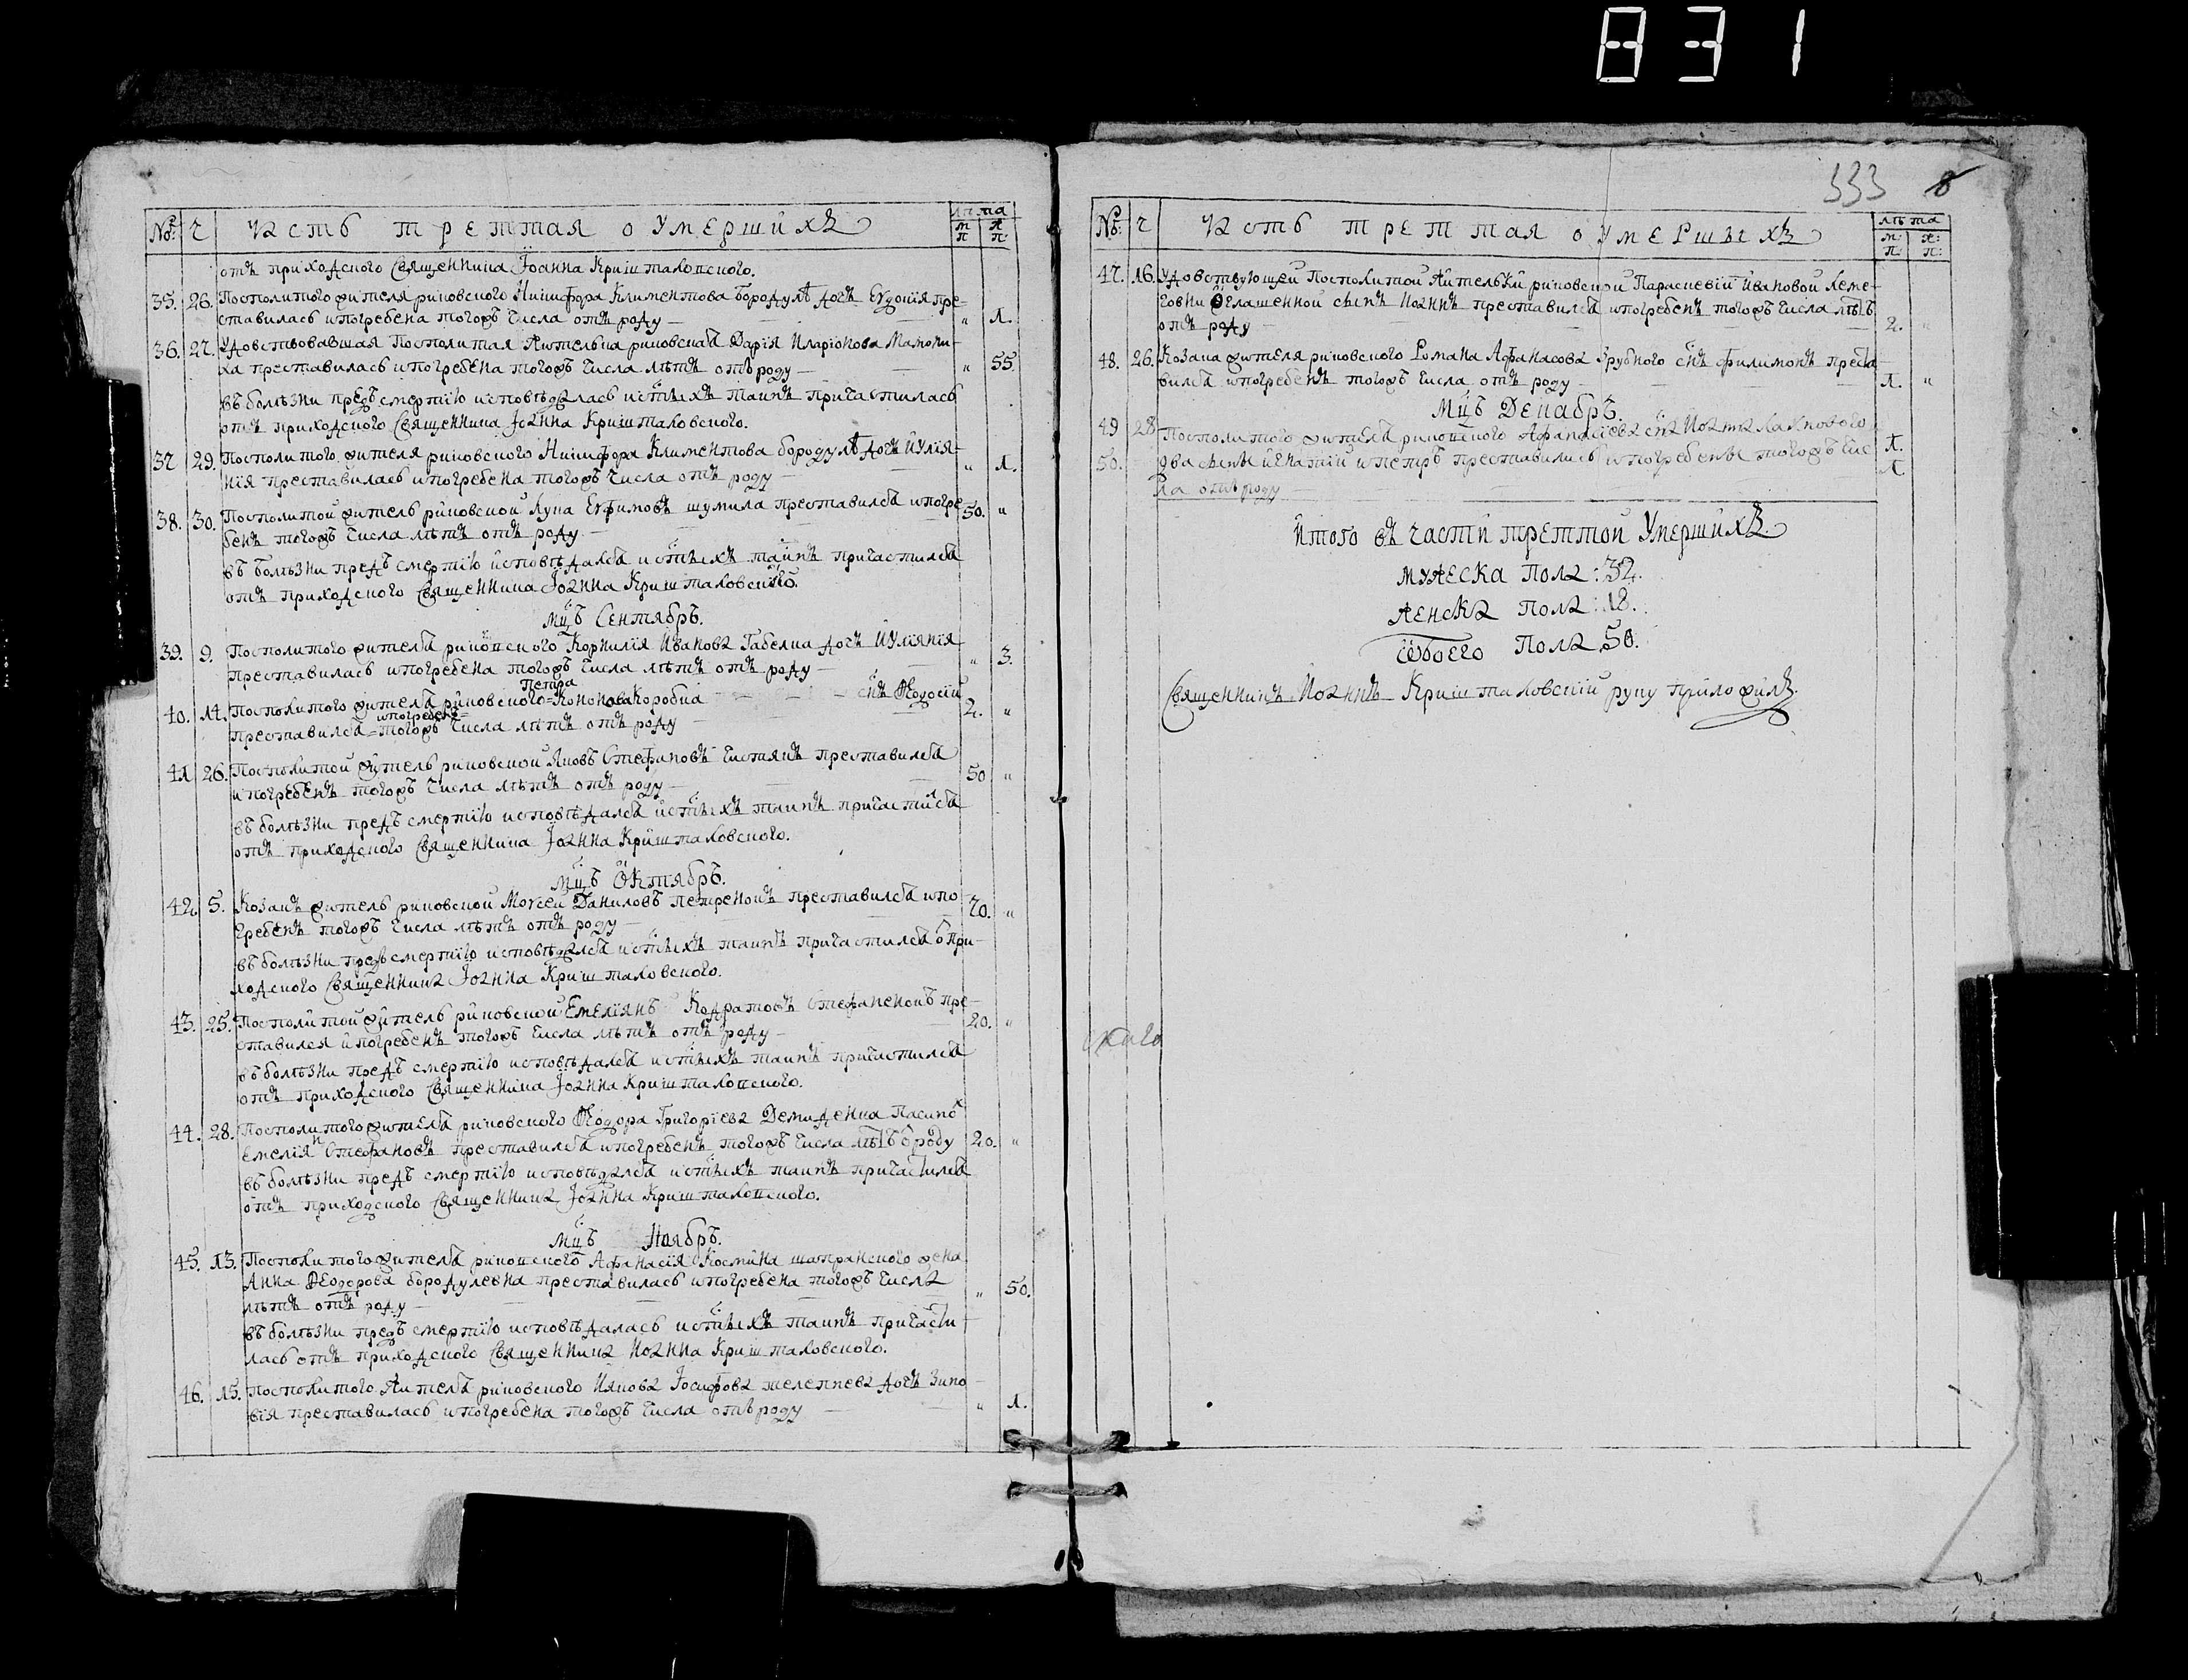 831
№ Ч Часть треттая о Умершихъ лѣта м п ж п
отъ приходского Священника Іоанна Кришталовского.
35. 26. Посполитого жителя риковского Никифора Климентова бородулѣ дочъ Евдокія пре-
ставилась и погребена тогожъ числа отъ роду — „ 1.
36. 27. Удовствовавшая Посполитая жителка риковская Дарія Иларіонова
ха преставилась и погребена тогожъ числа лѣтъ отъ роду — „ 55
въ болѣзни предъ смертію исповѣдалась и стыхъ таинъ причастилась
отъ приходского Священника Іоанна Кришталовского.
37 29. Посполитого жителя риковского Никифора Климентова бородулѣ дочъ Иулія-
нія преставилась и погребена тогожъ числа отъ роду — „ 1.
38. 30. Посполитой житель риковской Лука Евфимовъ шумила преставился и погре-
бенъ тогожъ числа лѣтъ отъ роду — 50. „
въ болѣзни предъ смертію исповѣдался и стыхъ таинъ причастился
отъ приходского Священника Іоанна Кришталовского.
Мцъ Сентябръ.
39. 9. Посполитого жителя риковского Корнилія Иванова Габелка дочъ Иуліянія
преставилась и погребена тогожъ числа лѣтъ отъ роду — „ 3.
Петра
40. 14. Посполитого жителя риковского Кононова Коробка — снъ Ѳеодосій
и погребенъ
преставился тогожъ числа лѣтъ отъ роду — 2. „
41 26. Посполитой житель риковской Яковъ Стефановъ преставился
и погребенъ тогожъ числа лѣтъ отъ роду — 50 „
въ болѣзни предъ смертію исповѣдался и стыхъ таинъ причастился
отъ приходского Священника Іоанна Кришталовского.
Мцъ Октябръ.
42. 5. Козакъ житель риковской Моѵсей Даниловъ петренокъ преставился и по
гребенъ тогожъ числа лѣтъ отъ роду — 70. „
въ болѣзни предъ смертію исповѣдался и стыхъ таинъ причастился ѿ при-
ходского Священника Іоанна Кришталовского.
43. 25. Посполитой житель риковской Емеліянъ Кодратовъ Стефаненокъ пре-
ставился и погребенъ тогожъ числа лѣтъ отъ роду — 20. „
въ болѣзни предъ смертію исповѣдался и стыхъ таинъ причастился
отъ приходского Священника Іоанна Кришталовского.
44. 28. Посполитого жителя риковского Ѳеодора Григоріева Демиденка Пасинокъ
Емеліянъ Стефановъ преставился и погребенъ тогожъ числа лѣтъ ѿ роду 20. „
въ болѣзни предъ смертію исповѣдался и стыхъ таинъ причастился
отъ приходского Священника Іоанна Кришталовского.
Мцъ Ноябръ.
45. 13. Посполитого жителя риковского Афанасія Космина шапранского жена
Анна Ѳеодорова бородулевна преставилась и погребена тогожъ числа
лѣтъ отъ роду — „ 50.
въ болѣзни предъ смертію исповѣдалась и стыхъ таинъ причасти-
лась отъ приходского Священника Иоанна Кришталовского.
46. 15. посполитого жителя риковского Иякова Іосифова дочъ Зино
вія преставилась и погребена тогожъ числа отъ роду — „ 1.
333 8
№ Ч Часть треттая о умершыхъ лѣта м: п: ж: п:
47. 16. Удовствующей Посполитой жительки риковской Параскевіи Ивановой
оглашенной сынъ Иоаннъ преставился и погребенъ тогожъ числа лѣтъ
отъ роду — 2. „
48. 26. Козака жителя риковского Романа Афанасова Зрубного снъ филимонъ преста-
вился и погребенъ тогожъ числа отъ роду — 1. „
Мцъ Декабръ.
49 28 Посполитого жителя риковского Афанасіева
50. два сыны Игнатій и петръ преставились и погребены тогожъ чис 1. 1
ла отъ роду —
Итого въ части треттой Умершихъ
мужеска пола: 32.
женска пола: 18.
Ѿбоего пола 50.
Священникъ Иоаннъ Кришталовскій руку приложилъ.